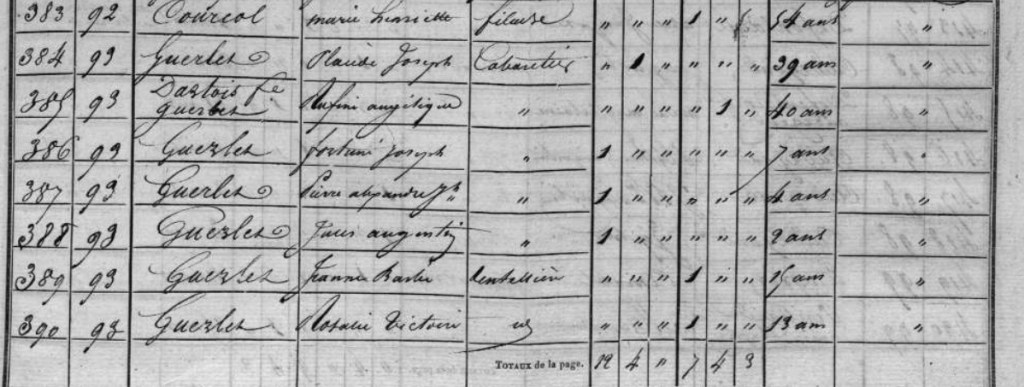 383 92 Courcol marie henriette fileuse " " " 1 " " 54 ans "
384 93 Guerlet Placide Joseph Cabaretier " 1 " " " " 39 ans "
385 93 Dartois fe Guerlet Rufine angélique " " " " " 1 " 40 ans "
386 93 Guerlet fortuné Joseph " 1 " " " " " 7 ans "
387 93 Guerlet Pierre alexandre Jh " 1 " " " " " 4 ans "
388 93 Guerlet augustin " 1 " " " " " 2 ans "
389 93 Guerlet Jeanne dentellière " " " 1 " " 15 ans "
390 93 Guerlet Rosalie Victoire " " " 1 " " 13 ans "
TOTAUX de la page. 12 4 " 7 4 3